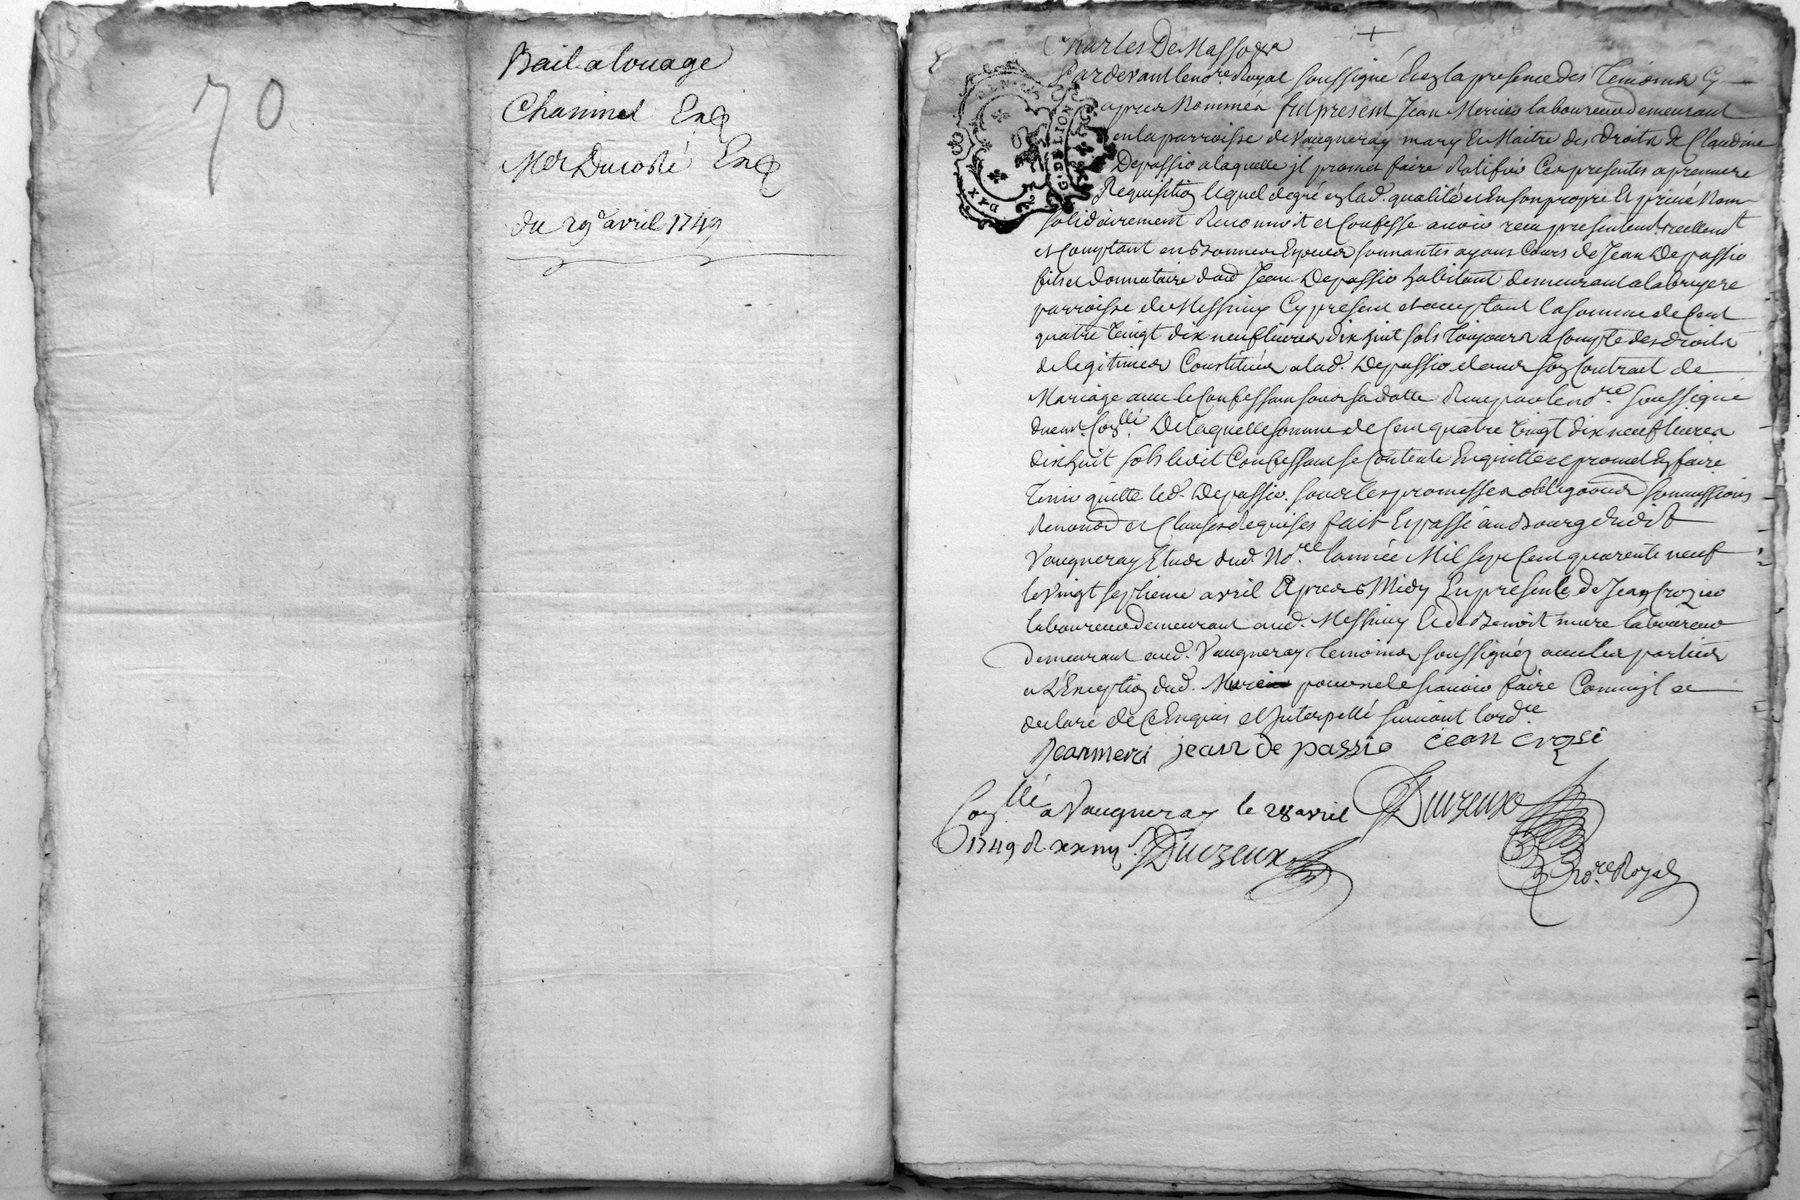 70
Bail a louage
Chaminet
Mer Ducosté
du 29e avril 1749
Charles De Masso
G. DE LION
Pardevant le nore Royal soussigné Et en la presence des Temoins Cy
apres Nommés fut present Jean Mercier laboureur demeurant
en la parroisse de Vaugneray mary Et Maitre des droits de Claudine
Depassio a laquelle il promet faire Ratiffier Ces presentes a premiere
Requisition lequel de gré en lad. qualité et En son propre Et privé Nom
solidairement Reconnoit et Confesse avoir receu presentemt. reellemt
et Comptant en Bonnes Especes sonnantes ayans Cours de Jean Depassio
fils et donnataire daud Jean Depassio habitant demeurant a la bruyere
parroisse de Messimy Cy present et acceptant la somme de Cent
quatre Vingt dix neuf livres dix huit sols Toujours a Compte des droits
de legitimes Constitués a lad. Depassio dans son Contrat de
Mariage avec le Confessant sous sa datte Receu par le nore. soussigné
duemt. Conllé. De laquelle somme de Cent quatre Vingt dix neuf livres
dix huit sols ledit Confessant se Contente En quitte et promet En faire
Tenir quitte led. Depassio. sous les promesses obligaons soumissions
Renonons et Clauses Requises fait Et passé au Bourg dudit
Vaugneray Etude dud. Nore. l'année Mil sept Cent quarente neuf
le Vingt septieme avril Apres Midy En presence de Jean Crozier
laboureur demeurant aud. Messimy Et de Benoit mure laboureur
demeurant aud. Vaugneray Temoins soussignés avec les parties
a L'Exception dud. pour ne le sçavoir faire Comm'il a
declaré de Ce Enquis et Interpellé suivant lordce.
Jean merci jean de passio jean crosi
Conllé a Vaugneray le 28 avril Duizeux
1749 R. Duizeux
Nore Royal